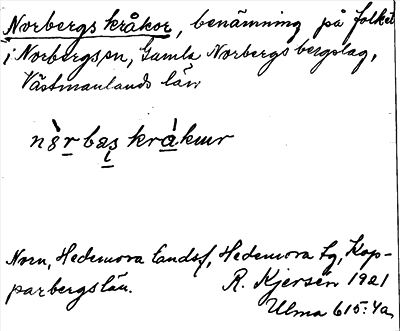 Norbergskråkor, benämning på folket
i Norbergs sn, Gamla Norbergs bergslag,
Västmanlands län
Norn, Hedemora landsf, Hedemora tg, Kop-
parbergs län.
R. Kjersén 1921
Ulma 615:4a